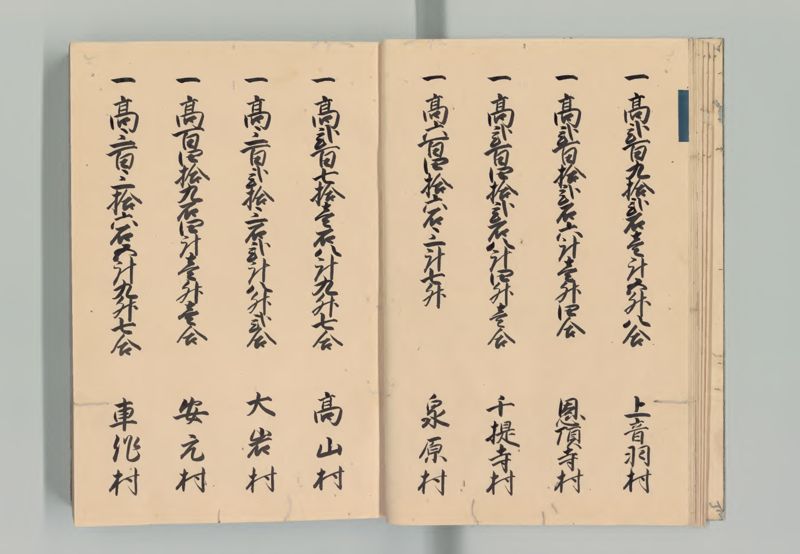 一高弐百九拾弐石壱斗五升八合 上音羽村
一高弐百拾弐石六斗壱升四合 恩頂寺村
一高弐百四拾弐石八斗四升壱合 千提寺村
一高六百四拾六石三斗七升 泉原村
一高弐百七拾壱石八斗九升七合 高山村
一高三百弐拾三石弐斗八升弐合 大岩村
一高百四拾九石四斗壱升壱合 安元村
一高三百三拾六石五斗九升七合 車作村